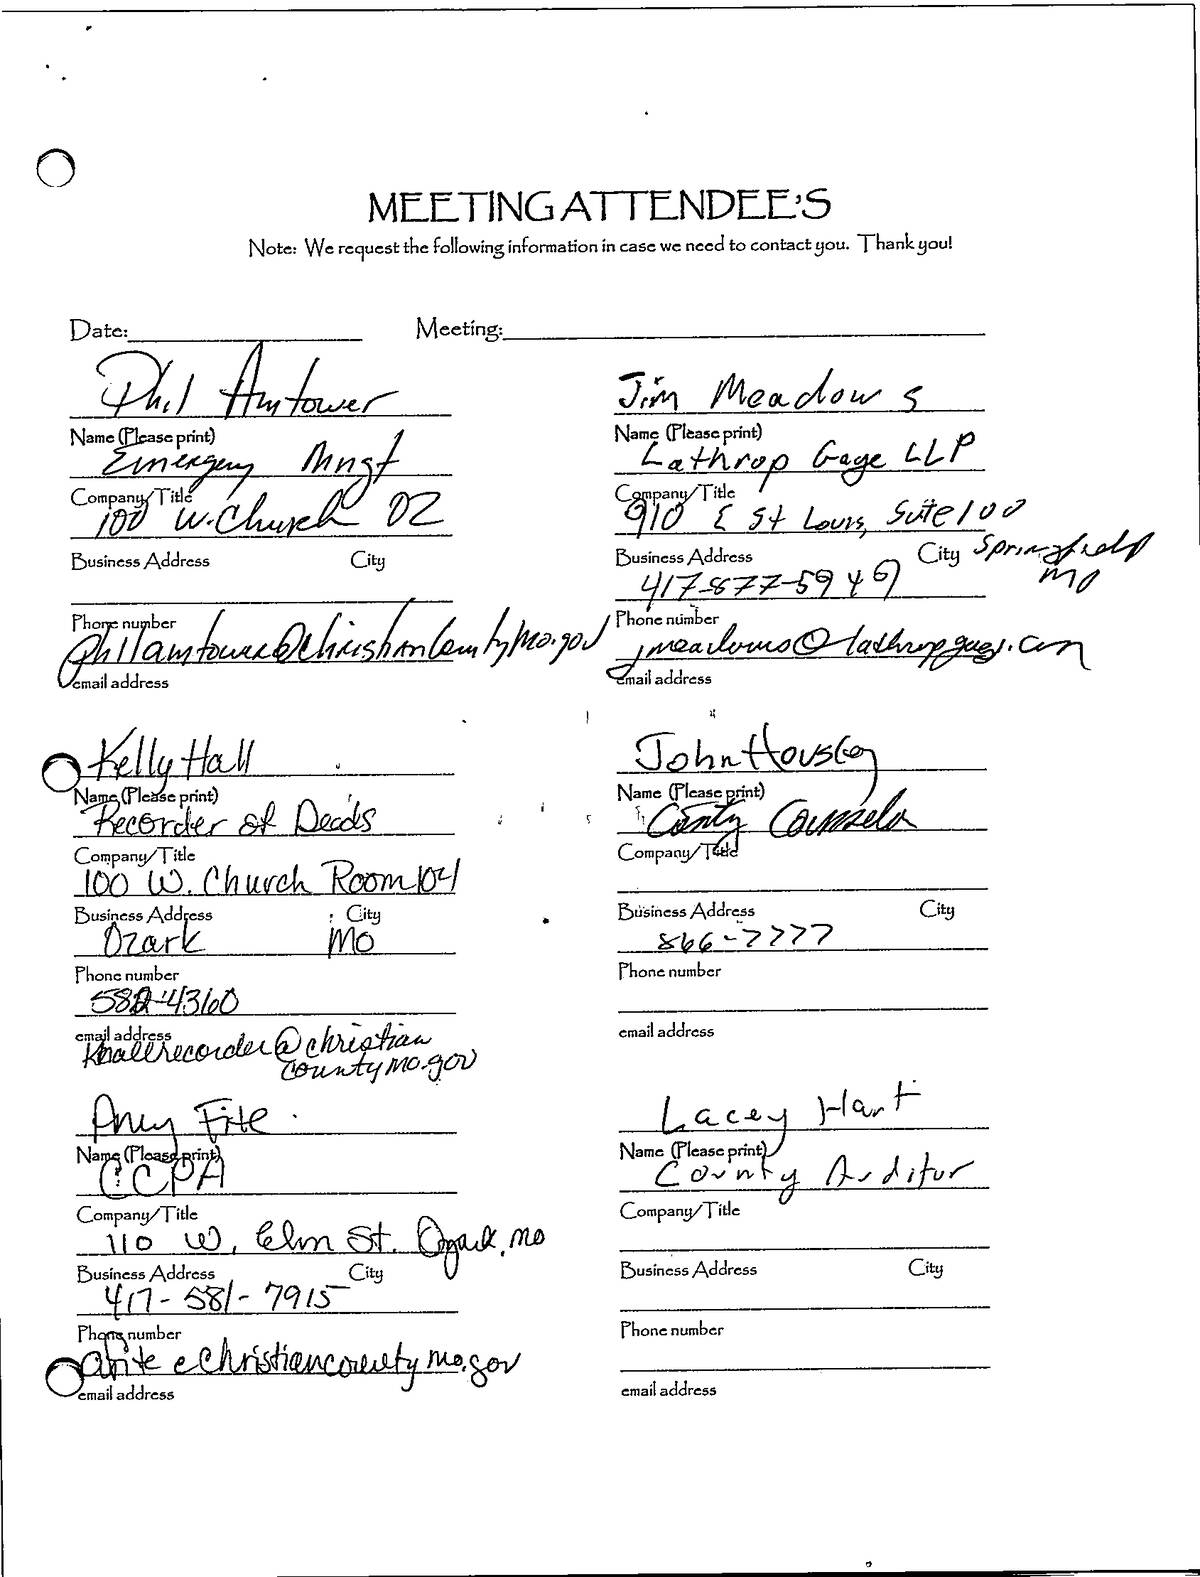 MEETING ATTENDEE'S
Note: We request the following information in case we need to contact you. Thank you!
Date: Meeting:
Phil Amtower
Name (Please print)
Emergency Mngt
Company/Title
100 W. Church OZ
Business Address City
Phone number
philamtower@christiancountymo.gov
email address
Jim Meadows
Name (Please print)
Lathrop Gage LLP
Company/Title
910 E St Louis, Suite 100
Business Address City Springfield
MO
417-877-5949
Phone number
jmeadows@lathropgage.com
email address
Kelly Hall
Name (Please print)
Recorder of Deeds
Company/Title
100 W. Church Room 104
Business Address City
Ozark MO
Phone number
582-4360
email address
khallrecorder@christian
countymo.gov
John Housley
Name (Please print)
County Counselor
Company/Title
Business Address City
866-7777
Phone number
email address
Amy Fite
Name (Please print)
CCPA
Company/Title
110 W. Elm St. Ozark, MO
Business Address City
417-581-7915
Phone number
afite@christiancountymo.gov
email address
Lacey Hart
Name (Please print)
County Auditor
Company/Title
Business Address City
Phone number
email address